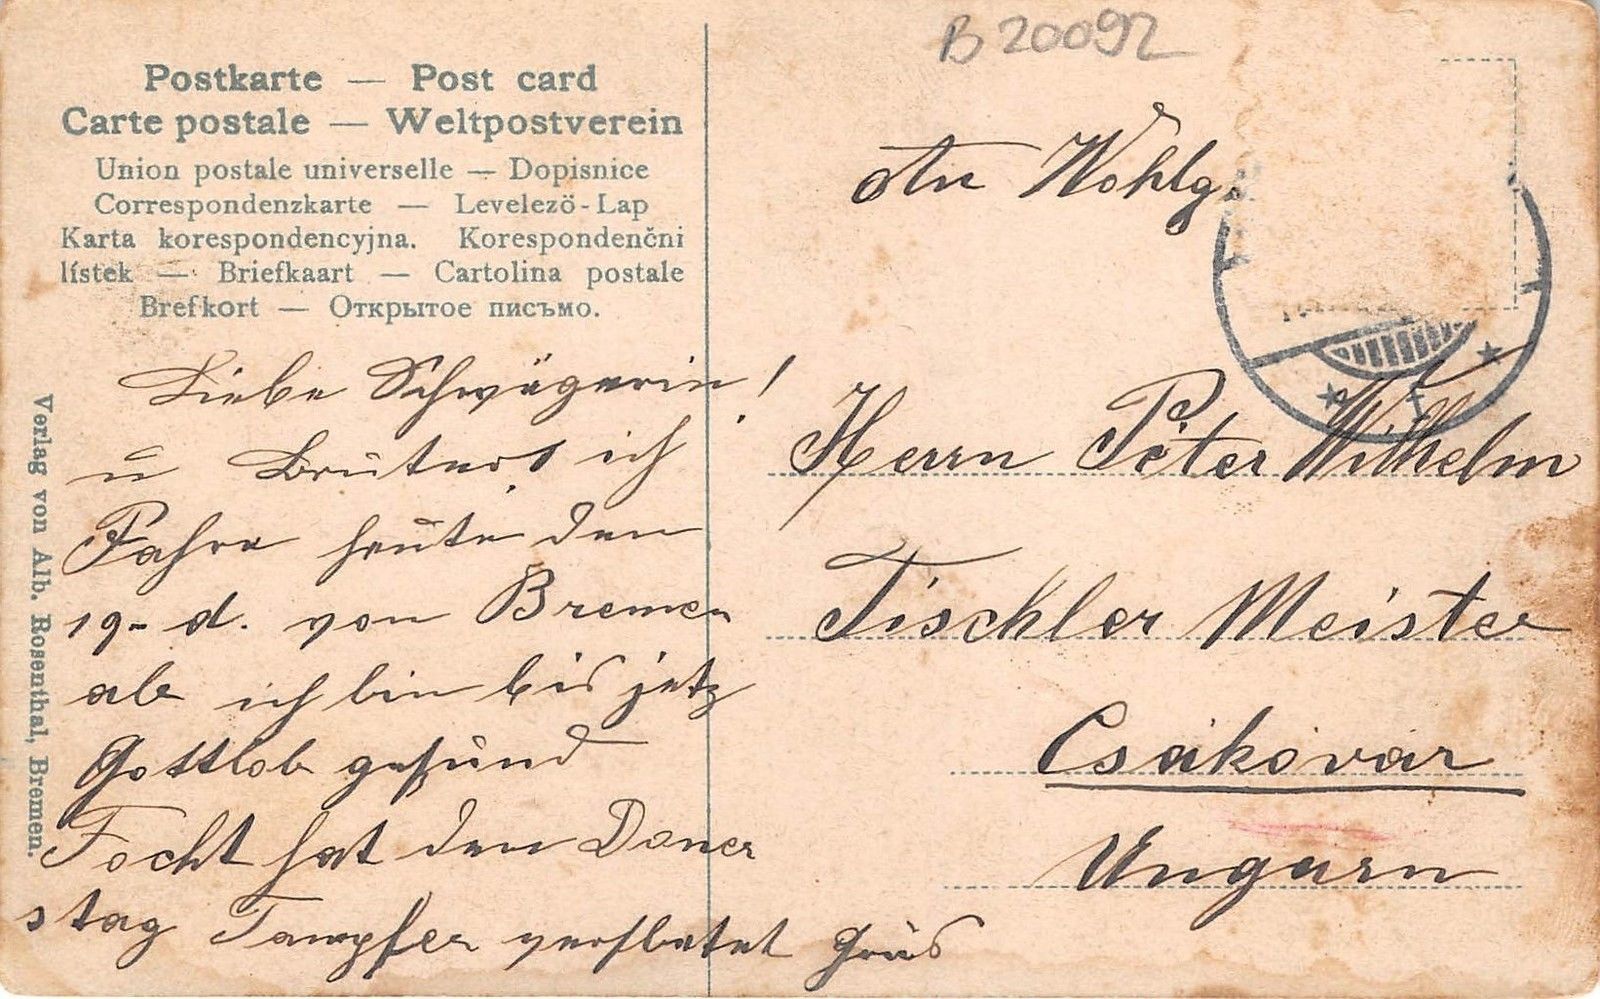 B 20092
Postkarte — Post card
Carte postale — Weltpostverein
Union postale universelle — Dopisnice
Correspondenzkarte — Levelező-Lap
Karta korespondencyjna. Korespondenční
lístek — Briefkaart — Cartolina postale
Brefkort — Открытое письмо.
Verlag von Alb. Rosenthal, Bremen.
Liebe Schwägerin!
u Bruter ich
Fahre heute den
19- d. von Bremen
ab ich bin bis jetz
Gottlob gesund
Focht hat den Doner
stag Tampfer
Grüs
An Wohlg.
Herrn Peter Wilhelm
Tischler Meister
Csakovar
Ungarn